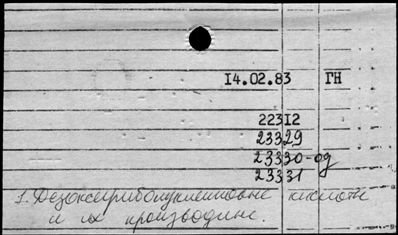 14.02.83 ГН
22312
23329
23330-од
23331
1. Дезоксирибонуклеиновые кислоты
и их производные.